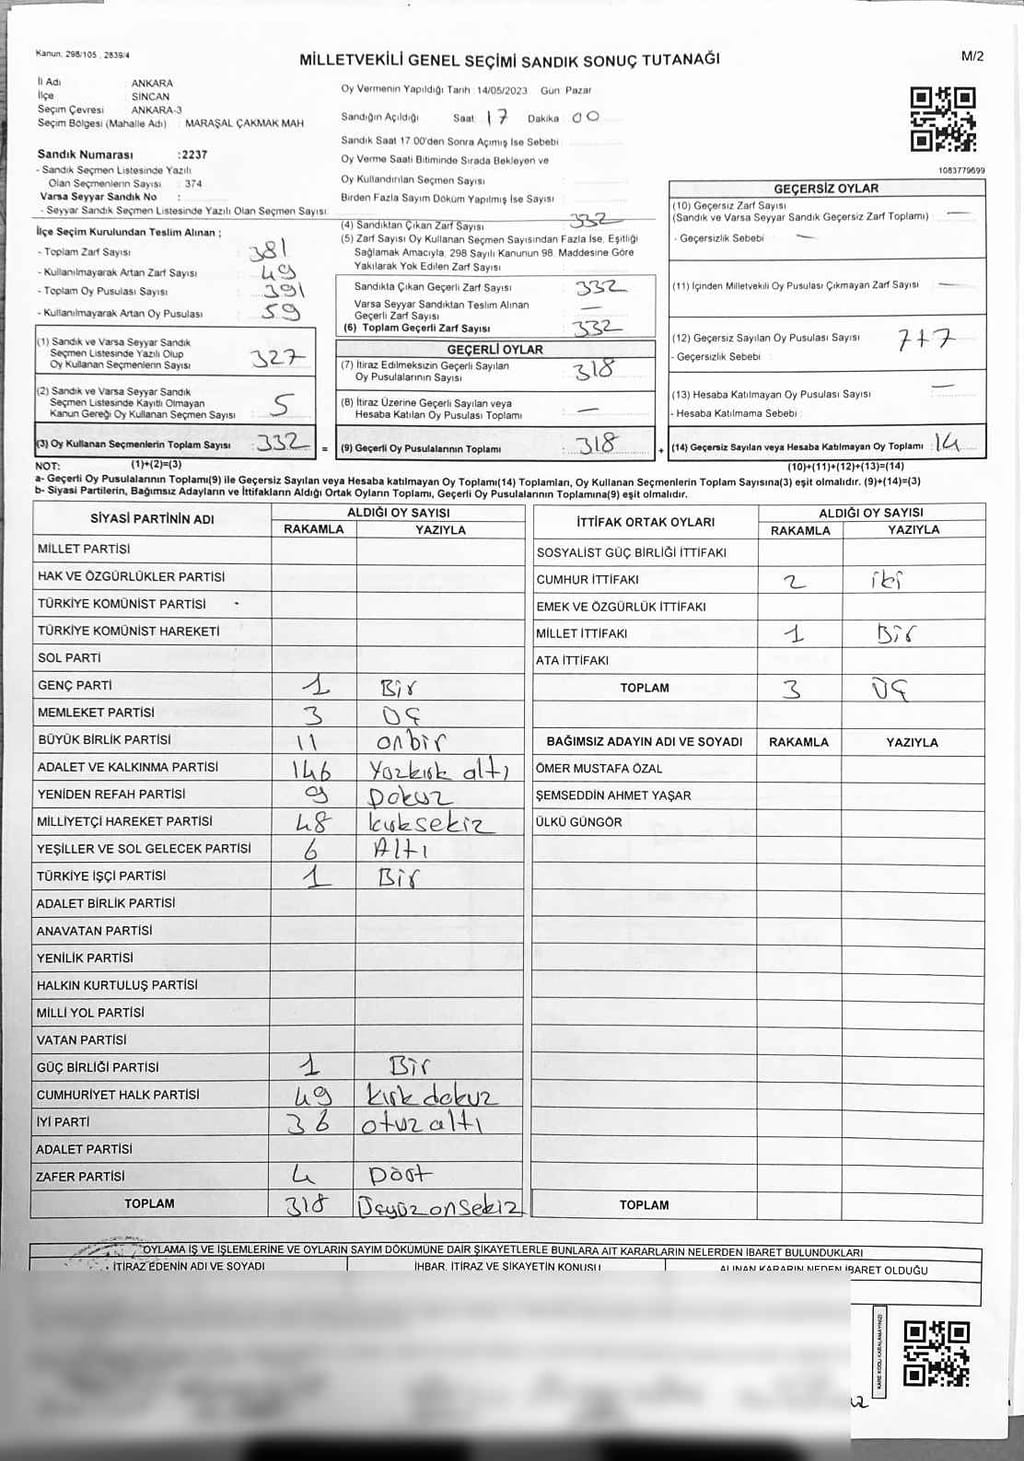 Kanun. 298/105 . 2839/4
MİLLETVEKİLİ GENEL SEÇİMİ SANDIK SONUÇ TUTANAĞI
M/2
İl Adı ANKARA
İlçe SİNCAN
Seçim Çevresi ANKARA-3
Seçim Bölgesi (Mahalle Adı) MARAŞAL ÇAKMAK MAH
Sandık Numarası :2237
- Sandık Seçmen Listesinde Yazılı
Olan Seçmenlerin Sayısı : 374
Varsa Seyyar Sandık No :
- Seyyar Sandık Seçmen Listesinde Yazılı Olan Seçmen Sayısı:
Oy Vermenin Yapıldığı Tarih 14/05/2023 Gün Pazar
Sandığın Açıldığı Saat 17 Dakika 00
Sandık Saat 17.00'den Sonra Açılmış İse Sebebi
Oy Verme Saati Bitiminde Sırada Bekleyen ve
Oy Kullandırılan Seçmen Sayısı
Birden Fazla Sayım Döküm Yapılmış İse Sayısı
1083779699
İlçe Seçim Kurulundan Teslim Alınan ;
- Toplam Zarf Sayısı 381
- Kullanılmayarak Artan Zarf Sayısı 49
- Toplam Oy Pusulası Sayısı 391
- Kullanılmayarak Artan Oy Pusulası 59
(1) Sandık ve Varsa Seyyar Sandık
Seçmen Listesinde Yazılı Olup
Oy Kullanan Seçmenlerin Sayısı 327
(2) Sandık ve Varsa Seyyar Sandık
Seçmen Listesinde Kayıtlı Olmayan
Kanun Gereği Oy Kullanan Seçmen Sayısı 5
(3) Oy Kullanan Seçmenlerin Toplam Sayısı 332 =
(4) Sandıktan Çıkan Zarf Sayısı 332
(5) Zarf Sayısı Oy Kullanan Seçmen Sayısından Fazla İse, Eşitliği
Sağlamak Amacıyla, 298 Sayılı Kanunun 98. Maddesine Göre
Yakılarak Yok Edilen Zarf Sayısı
Sandıkta Çıkan Geçerli Zarf Sayısı 332
Varsa Seyyar Sandıktan Teslim Alınan
Geçerli Zarf Sayısı —
(6) Toplam Geçerli Zarf Sayısı 332
GEÇERLİ OYLAR
(7) İtiraz Edilmeksizin Geçerli Sayılan
Oy Pusulalarının Sayısı 318
(8) İtiraz Üzerine Geçerli Sayılan veya
Hesaba Katılan Oy Pusulası Toplamı —
(9) Geçerli Oy Pusulalarının Toplamı 318 +
GEÇERSİZ OYLAR
(10) Geçersiz Zarf Sayısı
(Sandık ve Varsa Seyyar Sandık Geçersiz Zarf Toplamı) —
- Geçersizlik Sebebi —
(11) İçinden Milletvekili Oy Pusulası Çıkmayan Zarf Sayısı —
(12) Geçersiz Sayılan Oy Pusulası Sayısı 7+7
- Geçersizlik Sebebi
(13) Hesaba Katılmayan Oy Pusulası Sayısı —
- Hesaba Katılmama Sebebi
(14) Geçersiz Sayılan veya Hesaba Katılmayan Oy Toplamı 14
NOT: (1)+(2)=(3) (10)+(11)+(12)+(13)=(14)
a- Geçerli Oy Pusulalarının Toplamı(9) ile Geçersiz Sayılan veya Hesaba katılmayan Oy Toplamı(14) Toplamları, Oy Kullanan Seçmenlerin Toplam Sayısına(3) eşit olmalıdır. (9)+(14)=(3)
b- Siyasi Partilerin, Bağımsız Adayların ve İttifakların Aldığı Ortak Oyların Toplamı, Geçerli Oy Pusulalarının Toplamına(9) eşit olmalıdır.
SİYASİ PARTİNİN ADI ALDIĞI OY SAYISI
RAKAMLA YAZIYLA
MİLLET PARTİSİ
HAK VE ÖZGÜRLÜKLER PARTİSİ
TÜRKİYE KOMÜNİST PARTİSİ
TÜRKİYE KOMÜNİST HAREKETİ
SOL PARTİ
GENÇ PARTİ 1 Bir
MEMLEKET PARTİSİ 3 ÜÇ
BÜYÜK BİRLİK PARTİSİ 11 onbir
ADALET VE KALKINMA PARTİSİ 146 Yüzkırk altı
YENİDEN REFAH PARTİSİ 9 Dokuz
MİLLİYETÇİ HAREKET PARTİSİ 48 kırksekiz
YEŞİLLER VE SOL GELECEK PARTİSİ 6 Altı
TÜRKİYE İŞÇİ PARTİSİ 1 Bir
ADALET BİRLİK PARTİSİ
ANAVATAN PARTİSİ
YENİLİK PARTİSİ
HALKIN KURTULUŞ PARTİSİ
MİLLİ YOL PARTİSİ
VATAN PARTİSİ
GÜÇ BİRLİĞİ PARTİSİ 1 Bir
CUMHURİYET HALK PARTİSİ 49 kırk dokuz
İYİ PARTİ 36 otuz altı
ADALET PARTİSİ
ZAFER PARTİSİ 4 Dört
TOPLAM 318 Üçyüz onsekiz
İTTİFAK ORTAK OYLARI ALDIĞI OY SAYISI
RAKAMLA YAZIYLA
SOSYALİST GÜÇ BİRLİĞİ İTTİFAKI
CUMHUR İTTİFAKI 2 iki
EMEK VE ÖZGÜRLÜK İTTİFAKI
MİLLET İTTİFAKI 1 Bir
ATA İTTİFAKI
TOPLAM 3 ÜÇ
BAĞIMSIZ ADAYIN ADI VE SOYADI RAKAMLA YAZIYLA
ÖMER MUSTAFA ÖZAL
ŞEMSEDDİN AHMET YAŞAR
ÜLKÜ GÜNGÖR
TOPLAM
OYLAMA İŞ VE İŞLEMLERİNE VE OYLARIN SAYIM DÖKÜMÜNE DAİR ŞİKAYETLERLE BUNLARA AİT KARARLARIN NELERDEN İBARET BULUNDUKLARI
İTİRAZ EDENİN ADI VE SOYADI İHBAR, İTİRAZ VE ŞİKAYETİN KONUSU ALINAN KARARIN NEDEN İBARET OLDUĞU
KARE KODU KARALAMAYINIZ!